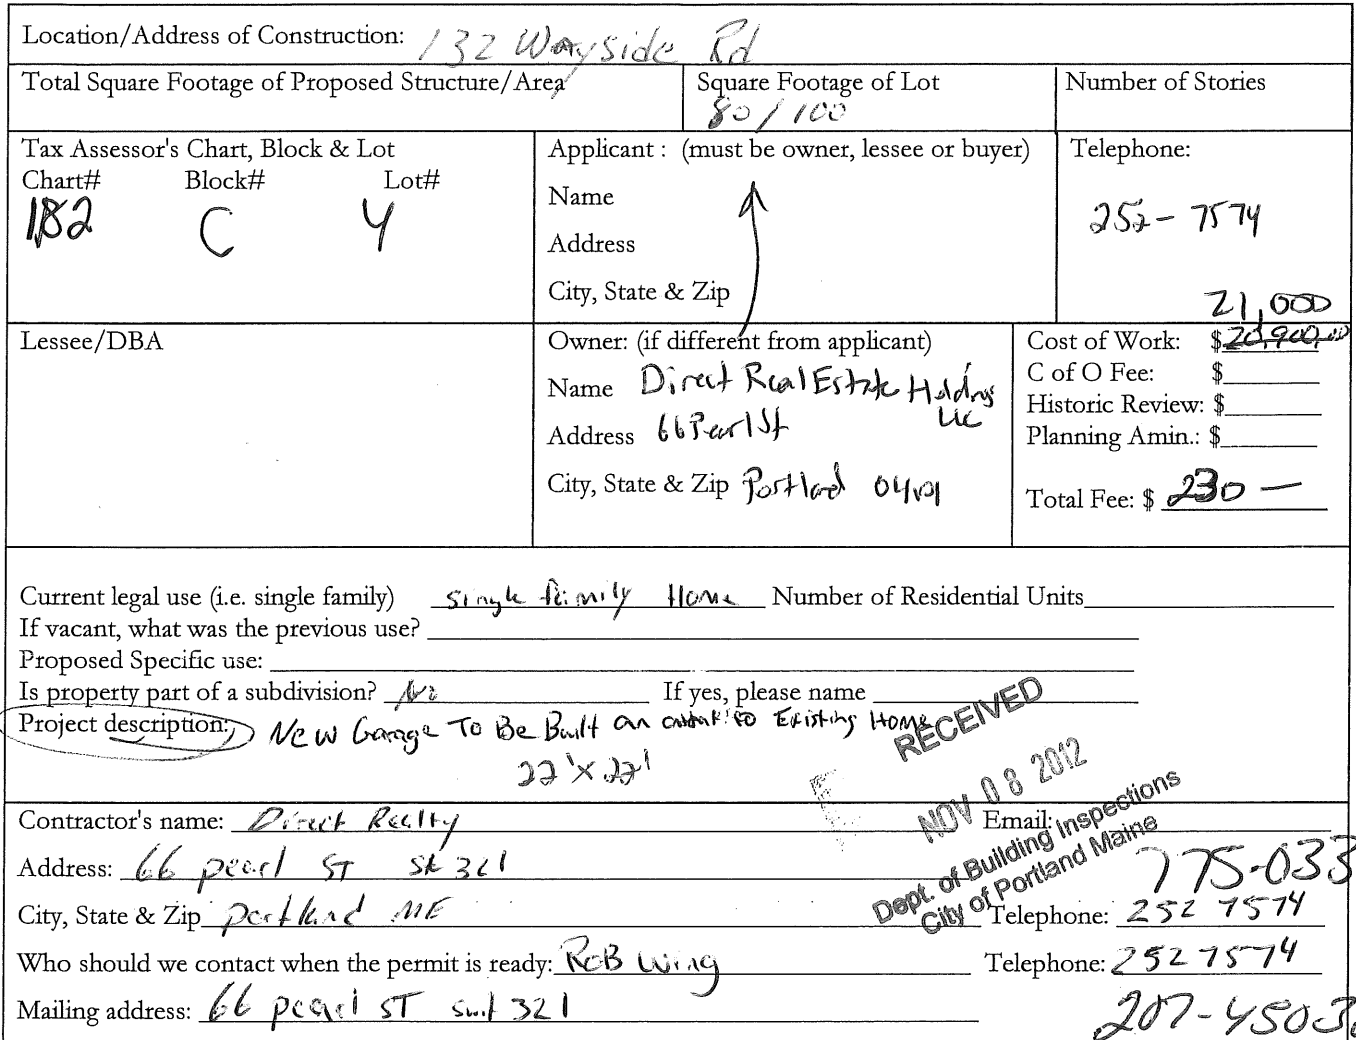 Location/Address of Construction: 132 Wayside Rd
Total Square Footage of Proposed Structure/Area
Square Footage of Lot
80/100
Number of Stories
Tax Assessor's Chart, Block & Lot
Chart# Block# Lot#
182 C 4
Applicant : (must be owner, lessee or buyer)
Name
Address
City, State & Zip
Telephone:
252-7574
Lessee/DBA
Owner: (if different from applicant)
Name Direct Real Estate Holdings LLC
Address 66 Pearl St
City, State & Zip Portland 04101
21,000
Cost of Work: $20,900.00
C of O Fee: $
Historic Review: $
Planning Amin.: $
Total Fee: $ 230 —
Current legal use (i.e. single family) single family Home Number of Residential Units
If vacant, what was the previous use?
Proposed Specific use:
Is property part of a subdivision? No If yes, please name
Project description: New Garage To Be Built an to Existing Home
22'x22'
RECEIVED
NOV 08 2012
Dept. of Building Inspections
City of Portland Maine
Contractor's name: Direct Realty Email:
Address: 66 pearl ST 321
775-033
City, State & Zip Portland ME Telephone: 252 7574
Who should we contact when the permit is ready: ROB Wing Telephone: 252 7574
Mailing address: 66 pearl ST 321
207-4503